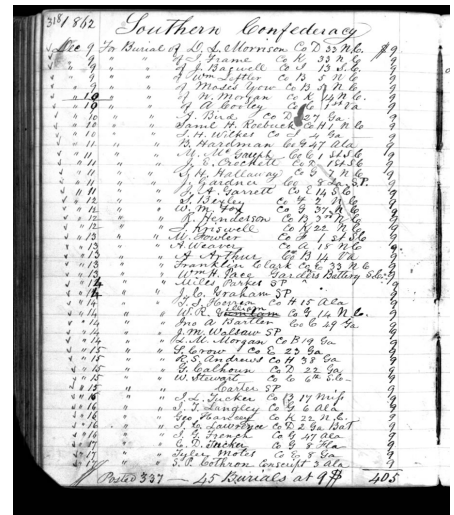 318 1862 Southern Confederacy
Dec 9 For Burial of D. L. Morrison Co D 33 N.C. $ 9
" 9 " " of J. Frame Co K 33 N.C. 9
" 9 " " of J. Bagwell Co 13 S.C. 9
" 9 " " of Wm Leftler Co B 5 N.C. 9
" 9 " " of Moses Yow Co B 5 N.C. 9
" 10 " " of N. Morgan Co K 14 N.C. 9
" 10 " " of A Corley Co C Va 9
" 10 " " J. Bird Co D 27 Ga 9
" 10 " " Saml H. Roebuck Co H 1 N.C. 9
" 10 " " S. H. Wilkes Co 4 Ga 9
" 11 " " B. Hardman Co G 47 Ala 9
" 11 " " M. Mc Co C 1st S.C 9
" 11 " " E. Crockett Co 1st S.C 9
" 11 " " H. Hallaway Co G N.C. 9
" 11 " " J. Gardner Co 8 S.P. 9
" 11 " " A. Garrett Co E 14 S.C 9
" 12 " " S. Bexley Co F 2 N.C 9
" 12 " " W. M. Fox Co G 37 N.C 9
" 12 " " R. Henderson Co B 3rd N.C 9
" 12 " " J. Kriswell Co K 22 N.C. 9
" 13 " " Fowler Co F 1 st S.C 9
" 13 " " A. Weaver Co A 18 N.C 9
" 13 " " A Arthur Co B 14 Va 9
" 13 " " Franklin Clark Co E 33 N.C. 9
" 13 " " Wm H. Pace Garders Battery S.C. 9
" 14 " " Miles Parker SP " 9
" 14 " " J. C. Graham SP 9
" 14 " " T. J. Co H 15 Ala 9
" 14 " " W. R. William Co G 14 N.C. 9
" 14 " " Jno A Bartler Co C 49 Ga 9
" 14 " " J. M. Walsaw SP 9
" 14 " " L. M. Morgan Co B 19 Ga 9
" 15 " " G. Crow Co E 23 Ga 9
" 15 " " R. S. Andrews Co H 38 Ga 9
" 15 " " G. Calhoun Co D 22 Ga 9
" 15 " " W. Stewart Co C 6th S.C. 9
" 15 " " Carter SP 9
" 16 " " J. L. Tucker Co B 17 Miss 9
" 16 " " J. T. Langley Co G 6 Ala 9
" 16 " " Geo Harvey Co K 22 N.C. 9
" 16 " " J. C. Lawrence Co D 2 Ga Bat 9
" 16 " " J. G. French Co G 47 Ala 9
" 17 " " C. D. Tucker Co G 8 Fla 9
" 17 " " Tyler Motes Co E 8 Ga 9
" 17 " " S. P. Cothron Conscript 3 Ala 9
Posted 337 — 45 Burials at 9 $ 405